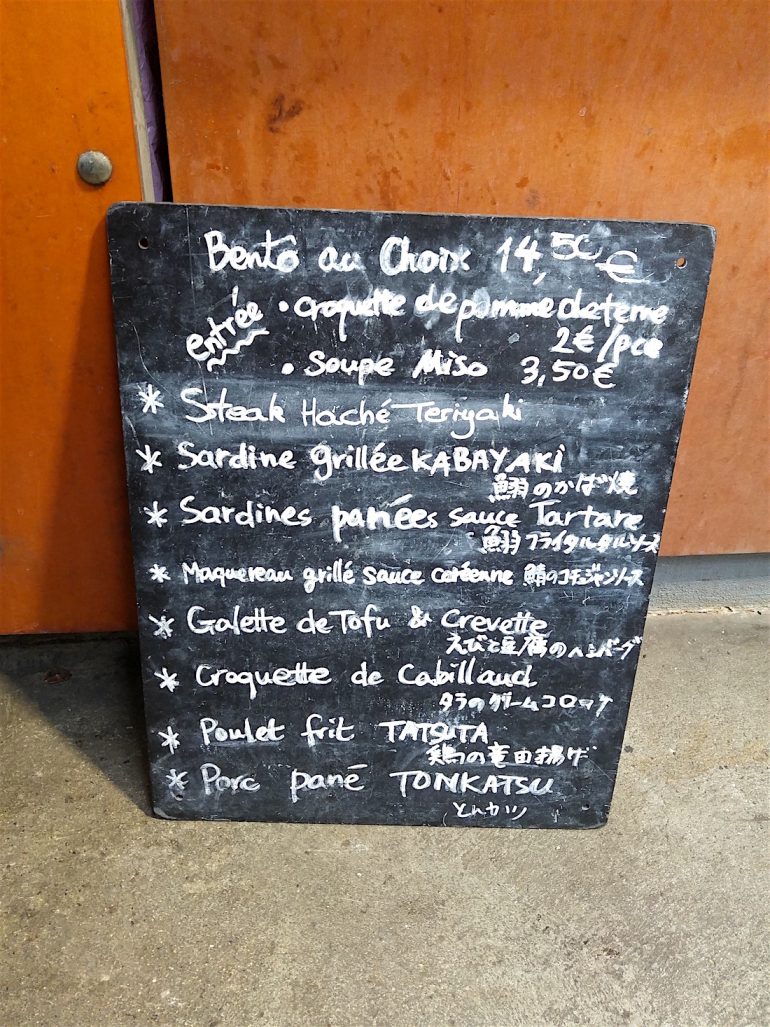 Bento au Choix 14,50 €
entrée
• Croquette de pomme de terre
2€/pce
• Soupe Miso 3,50€
* Steak Haché Teriyaki
* Sardine grillée KABAYAKI
鰯のかば焼
* Sardines panées sauce Tartare
鰯フライタルタルソース
* Maquereau grillé sauce coréenne 鯖のコチュジャンソース
* Galette de Tofu & Crevette
えびと豆腐のハンバーグ
* Croquette de Cabillaud
タラのクリームコロッケ
* Poulet frit TATSUTA
鶏の竜田揚げ
* Porc pané TONKATSU
とんカツ